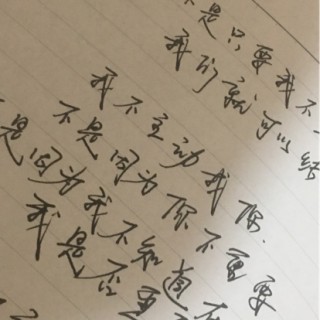 是只要我不
我们就可以结
我不主动找你.
不是因为你不重要
是因为我不知道
我是否重